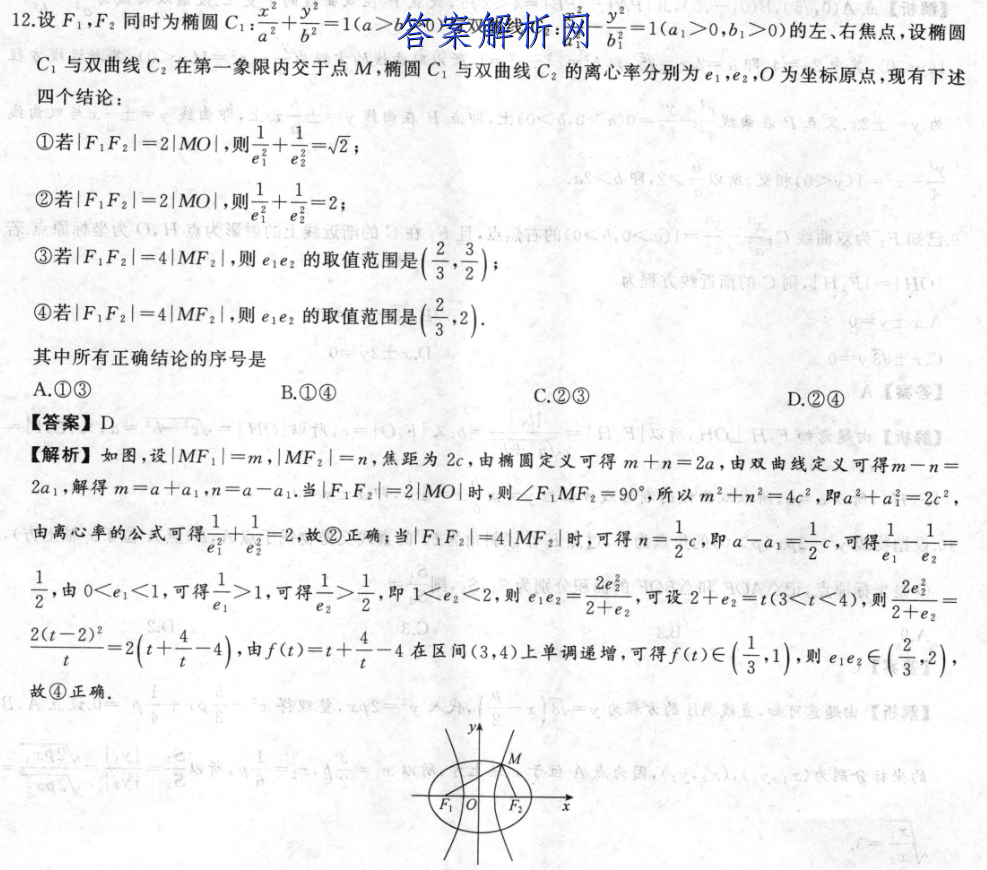 12.设 F₁,F₂ 同时为椭圆 C₁:x²/a²+y²/b²=1(a>b>0)与双曲线 C₂:x²/a₁²-y²/b₁²=1(a₁>0,b₁>0)的左、右焦点,设椭圆
答案解析网
C₁ 与双曲线 C₂ 在第一象限内交于点 M,椭圆 C₁ 与双曲线 C₂ 的离心率分别为 e₁,e₂,O 为坐标原点,现有下述
四个结论:
①若|F₁F₂|=2|MO|,则1/e₁²+1/e₂²=√2;
②若|F₁F₂|=2|MO|,则1/e₁²+1/e₂²=2;
③若|F₁F₂|=4|MF₂|,则 e₁e₂ 的取值范围是(2/3,3/2);
④若|F₁F₂|=4|MF₂|,则 e₁e₂ 的取值范围是(2/3,2).
其中所有正确结论的序号是
A.①③ B.①④ C.②③ D.②④
【答案】D
【解析】如图,设|MF₁|=m,|MF₂|=n,焦距为 2c,由椭圆定义可得 m+n=2a,由双曲线定义可得m-n=
2a₁,解得 m=a+a₁,n=a-a₁.当|F₁F₂|=2|MO|时,则∠F₁MF₂=90°,所以 m²+n²=4c²,即a²+a₁²=2c²,
由离心率的公式可得1/e₁²+1/e₂²=2,故②正确;当|F₁F₂|=4|MF₂|时,可得n=1/2c,即 a-a₁=1/2c,可得1/e₁-1/e₂=
1/2,由 0<e₁<1,可得1/e₁>1,可得1/e₂>1/2,即 1<e₂<2,则 e₁e₂=2e₂²/(2+e₂),可设 2+e₂=t(3<t<4),则2e₂²/(2+e₂)=
2(t-2)²/t=2(t+4/t-4),由f(t)=t+4/t-4 在区间(3,4)上单调递增,可得f(t)∈(1/3,1),则 e₁e₂∈(2/3,2),
故④正确.
y
M
F₁ O F₂ x